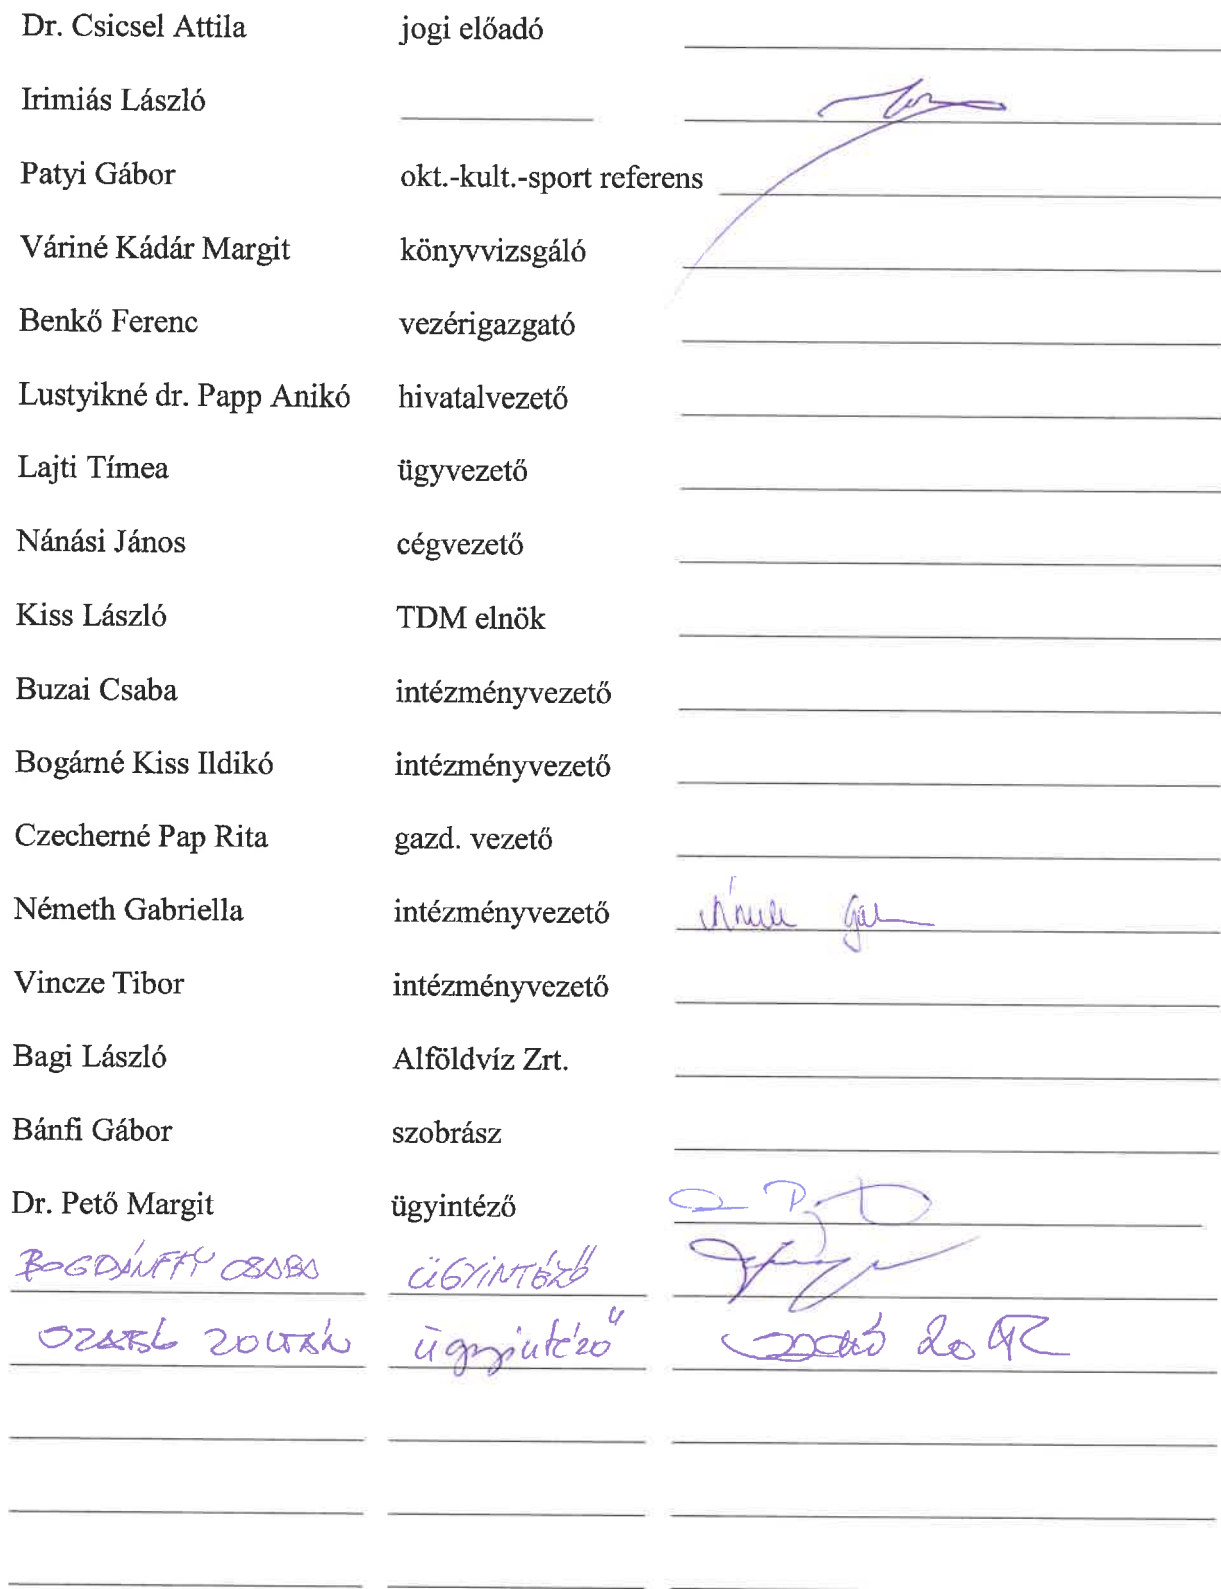 Dr. Csicsel Attila jogi előadó
Irimiás László
Patyi Gábor okt.-kult.-sport referens
Váriné Kádár Margit könyvvizsgáló
Benkő Ferenc vezérigazgató
Lustyikné dr. Papp Anikó hivatalvezető
Lajti Tímea ügyvezető
Nánási János cégvezető
Kiss László TDM elnök
Buzai Csaba intézményvezető
Bogárné Kiss Ildikó intézményvezető
Czecherné Pap Rita gazd. vezető
Németh Gabriella intézményvezető
Vincze Tibor intézményvezető
Bagi László Alföldvíz Zrt.
Bánfi Gábor szobrász
Dr. Pető Margit ügyintéző
BOGDÁNFFY CSABA ÜGYINTÉZŐ
ZOLTÁN ügyintéző